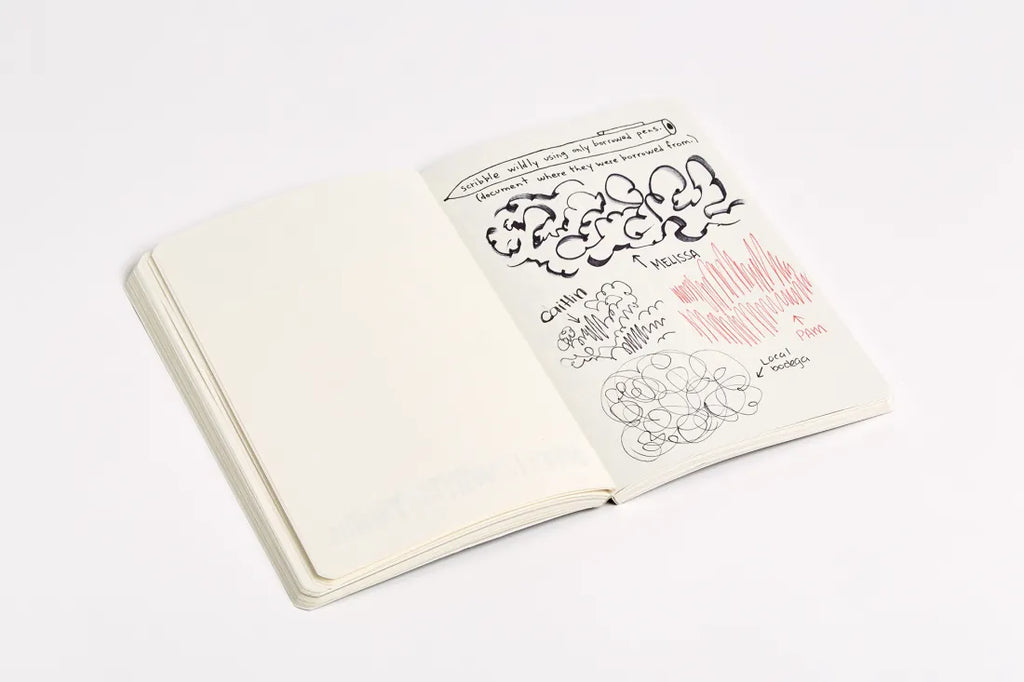 scribble wildly using only borrowed pens.
(document where they were borrowed from.)
MELISSA
Caitlin
PAM
Local
bodega